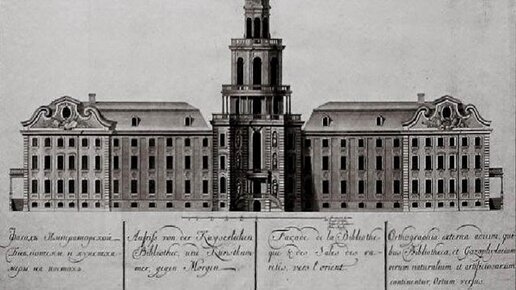 Фасадъ Императорской
Библиотеки и кунсткa-
меры на востокъ.
Aufriß von der Kayserlichen
Bibliothec, und Kunstkam-
mer, gegen Morgen.
Façade de la Bibliothe-
que & des Sales des ra-
retés, vers l'orient.
Orthographia externa aedium, qui-
bus Bibliotheca, et Gazophylacium
rerum naturalium et artificiosarum
continentur, Ortum versus.